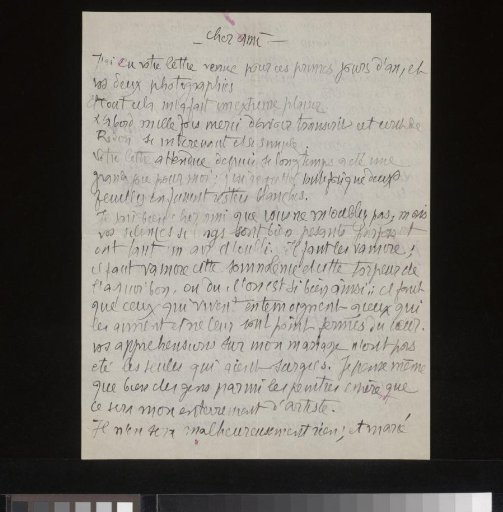 cher ami
J'ai eu votre lettre venue pour ces primes jours d'an, et
vos deux photographies
et tout cela m'a fait un extreme plaisir
d'abord mille fois merci d'avoir transcrit cet ecrit de
Redon si interessant et si simple.
Votre lettre attendue depuis si longtemps a été une
grande joie pour moi; j'ai regretté que deux
feuilles en fussent restées blanches.
Je sais bien cher ami que vous ne m'oubliez pas, mais
vos silences si longs sont bien pesants parfois et
ont tant un air d'oubli. Il faut les vaincre;
il faut vaincre cette somnolence et cette torpeur de
l'aquoibon, ou du: l'on est si bien ainsi; il faut
que ceux qui vivent en temoignent à ceux qui
les aiment et ne leur sont point fermés du cœur.
vos apprehensions sur mon mariage n'ont pas
eté les seules qui aient surgies. Je pense même
que bien des gens parmi les peintres que
ce sera mon enterrement d'artiste.
Il n'en sera malheureusement rien; et marié